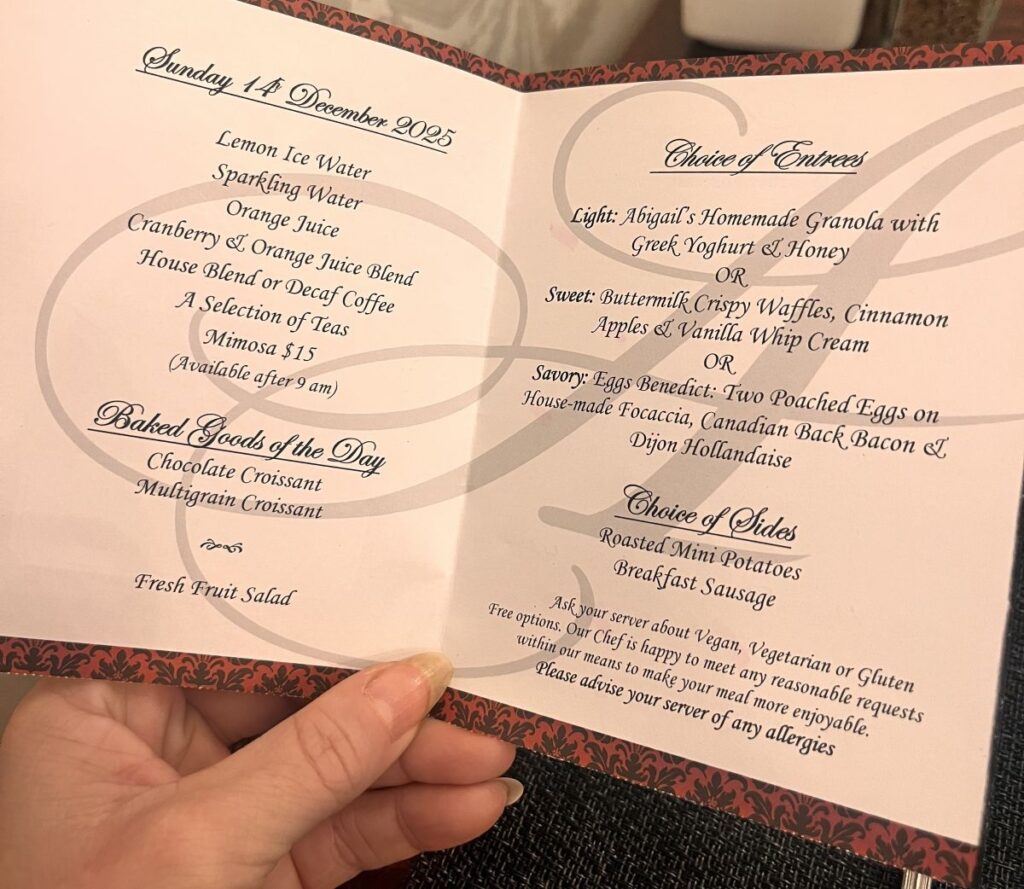 Sunday 14th December 2025
Lemon Ice Water
Sparkling Water
Orange Juice
Cranberry & Orange Juice Blend
House Blend or Decaf Coffee
A Selection of Teas
Mimosa $15
(Available after 9 am)
Baked Goods of the Day
Chocolate Croissant
Multigrain Croissant
Fresh Fruit Salad
Choice of Entrees
Light: Abigail's Homemade Granola with
Greek Yoghurt & Honey
OR
Sweet: Buttermilk Crispy Waffles, Cinnamon
Apples & Vanilla Whip Cream
OR
Savory: Eggs Benedict: Two Poached Eggs on
House-made Focaccia, Canadian Back Bacon &
Dijon Hollandaise
Choice of Sides
Roasted Mini Potatoes
Breakfast Sausage
Ask your server about Vegan, Vegetarian or Gluten
Free options. Our Chef is happy to meet any reasonable requests
within our means to make your meal more enjoyable.
Please advise your server of any allergies